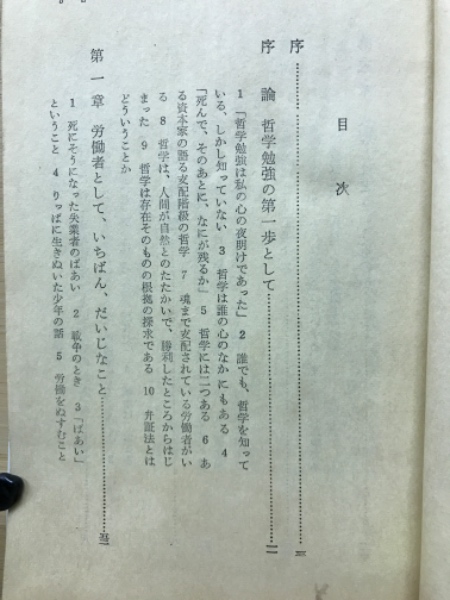 目次
序……………………………………三
序論 哲学勉強の第一歩として……………………二
1 「哲学勉強は私の心の夜明けであった」 2 誰でも、哲学を知って
いる、しかし知っていない 3 哲学は誰の心のなかにもある 4
「死んで、そのあとに、なにが残るか」 5 哲学には二つある 6 あ
る資本家の語る支配階級の哲学 7 魂まで支配されている労働者がい
る 8 哲学は、人間が自然とのたたかいで、勝利したところからはじ
まった 9 哲学は存在そのものの根拠の探求である 10 弁証法とは
どういうことか
第一章 労働者として、いちばん、だいじなこと……………
1 死にそうになった失業者のばあい 2 戦争のとき 3 「ばあい」
ということ 4 りっぱに生きぬいた少年の話 5 労働をぬすむこと